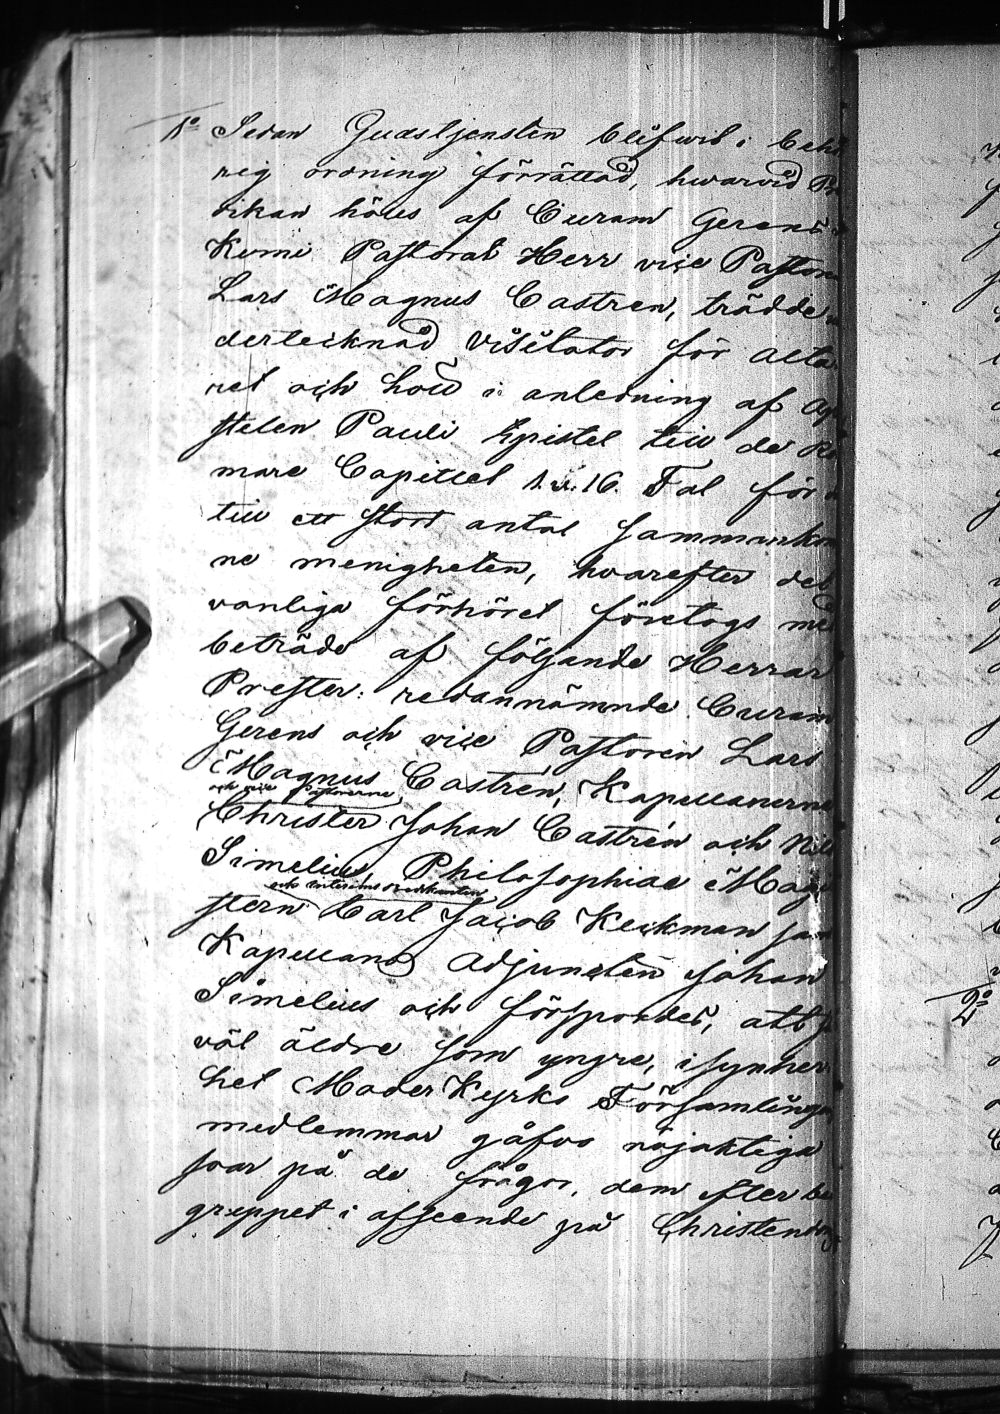 1o Sedan Gudstjensten blifwit i behö
rig ordning förrättad, hwarvid Pre
dikan hölls af Curam Gerens i
Kemi Pastorat Herr vice Pastorn
Lars Magnus Castren, trädde un
dertecknad Visitator för alta
ret och höll i anledning af Apo
stelen Pauli Epistel till de Ro
mare Capitlet 1. v. 16. Tal för
till ett stort antal sammankom
ne menigheten, hvarefter det
vanliga förhöret företogs med
beträde af följande Herrar
Prester: redannämnde Curam
Gerens och vice Pastoren Lars
Magnus Castrén, Kapellanerne
och vice Pastorerne
Christer Johan Castrén och Nils
Simelius, Philosophiae Magi
och Interims Predikanten
stern Carl Jacob Keckman samt
Kapellans Adjuncten Johan
Simelius och försporddes, att så
väl äldre som yngre, i synner
het Moder Kyrko Församlings
medlemmar gåfvo nöjaktiga
svar på de frågor, dem efter be
greppet i afseende på Christendom
2o